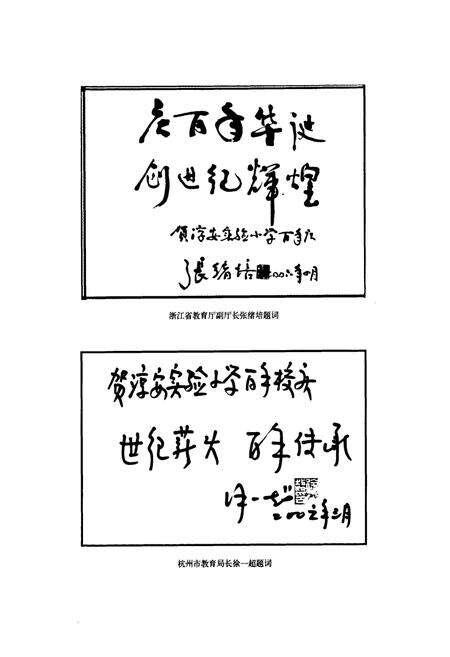 庆百年华诞
创世纪辉煌
贺淳安实验小学百年庆
张绪培 二〇〇六年四月
浙江省教育厅副厅长张绪培题词
贺淳安实验小学百年校庆
世纪薪火 百年传承
徐一超
二〇〇六年三月
杭州市教育局长徐一超题词